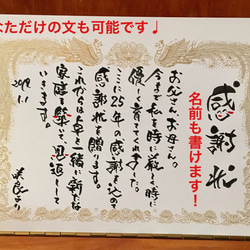 なただけの文も可能です♩
感謝状
名前も書けます！
お父さんお母さん。
今まで私を時に厳しく時に
優しく育ててくれました。
ここに25年の感謝を込めて
感謝状を贈ります。
これからは卓と一緒に新たな
家庭を築いて恩返しして
いきます。
2019.1.1
より